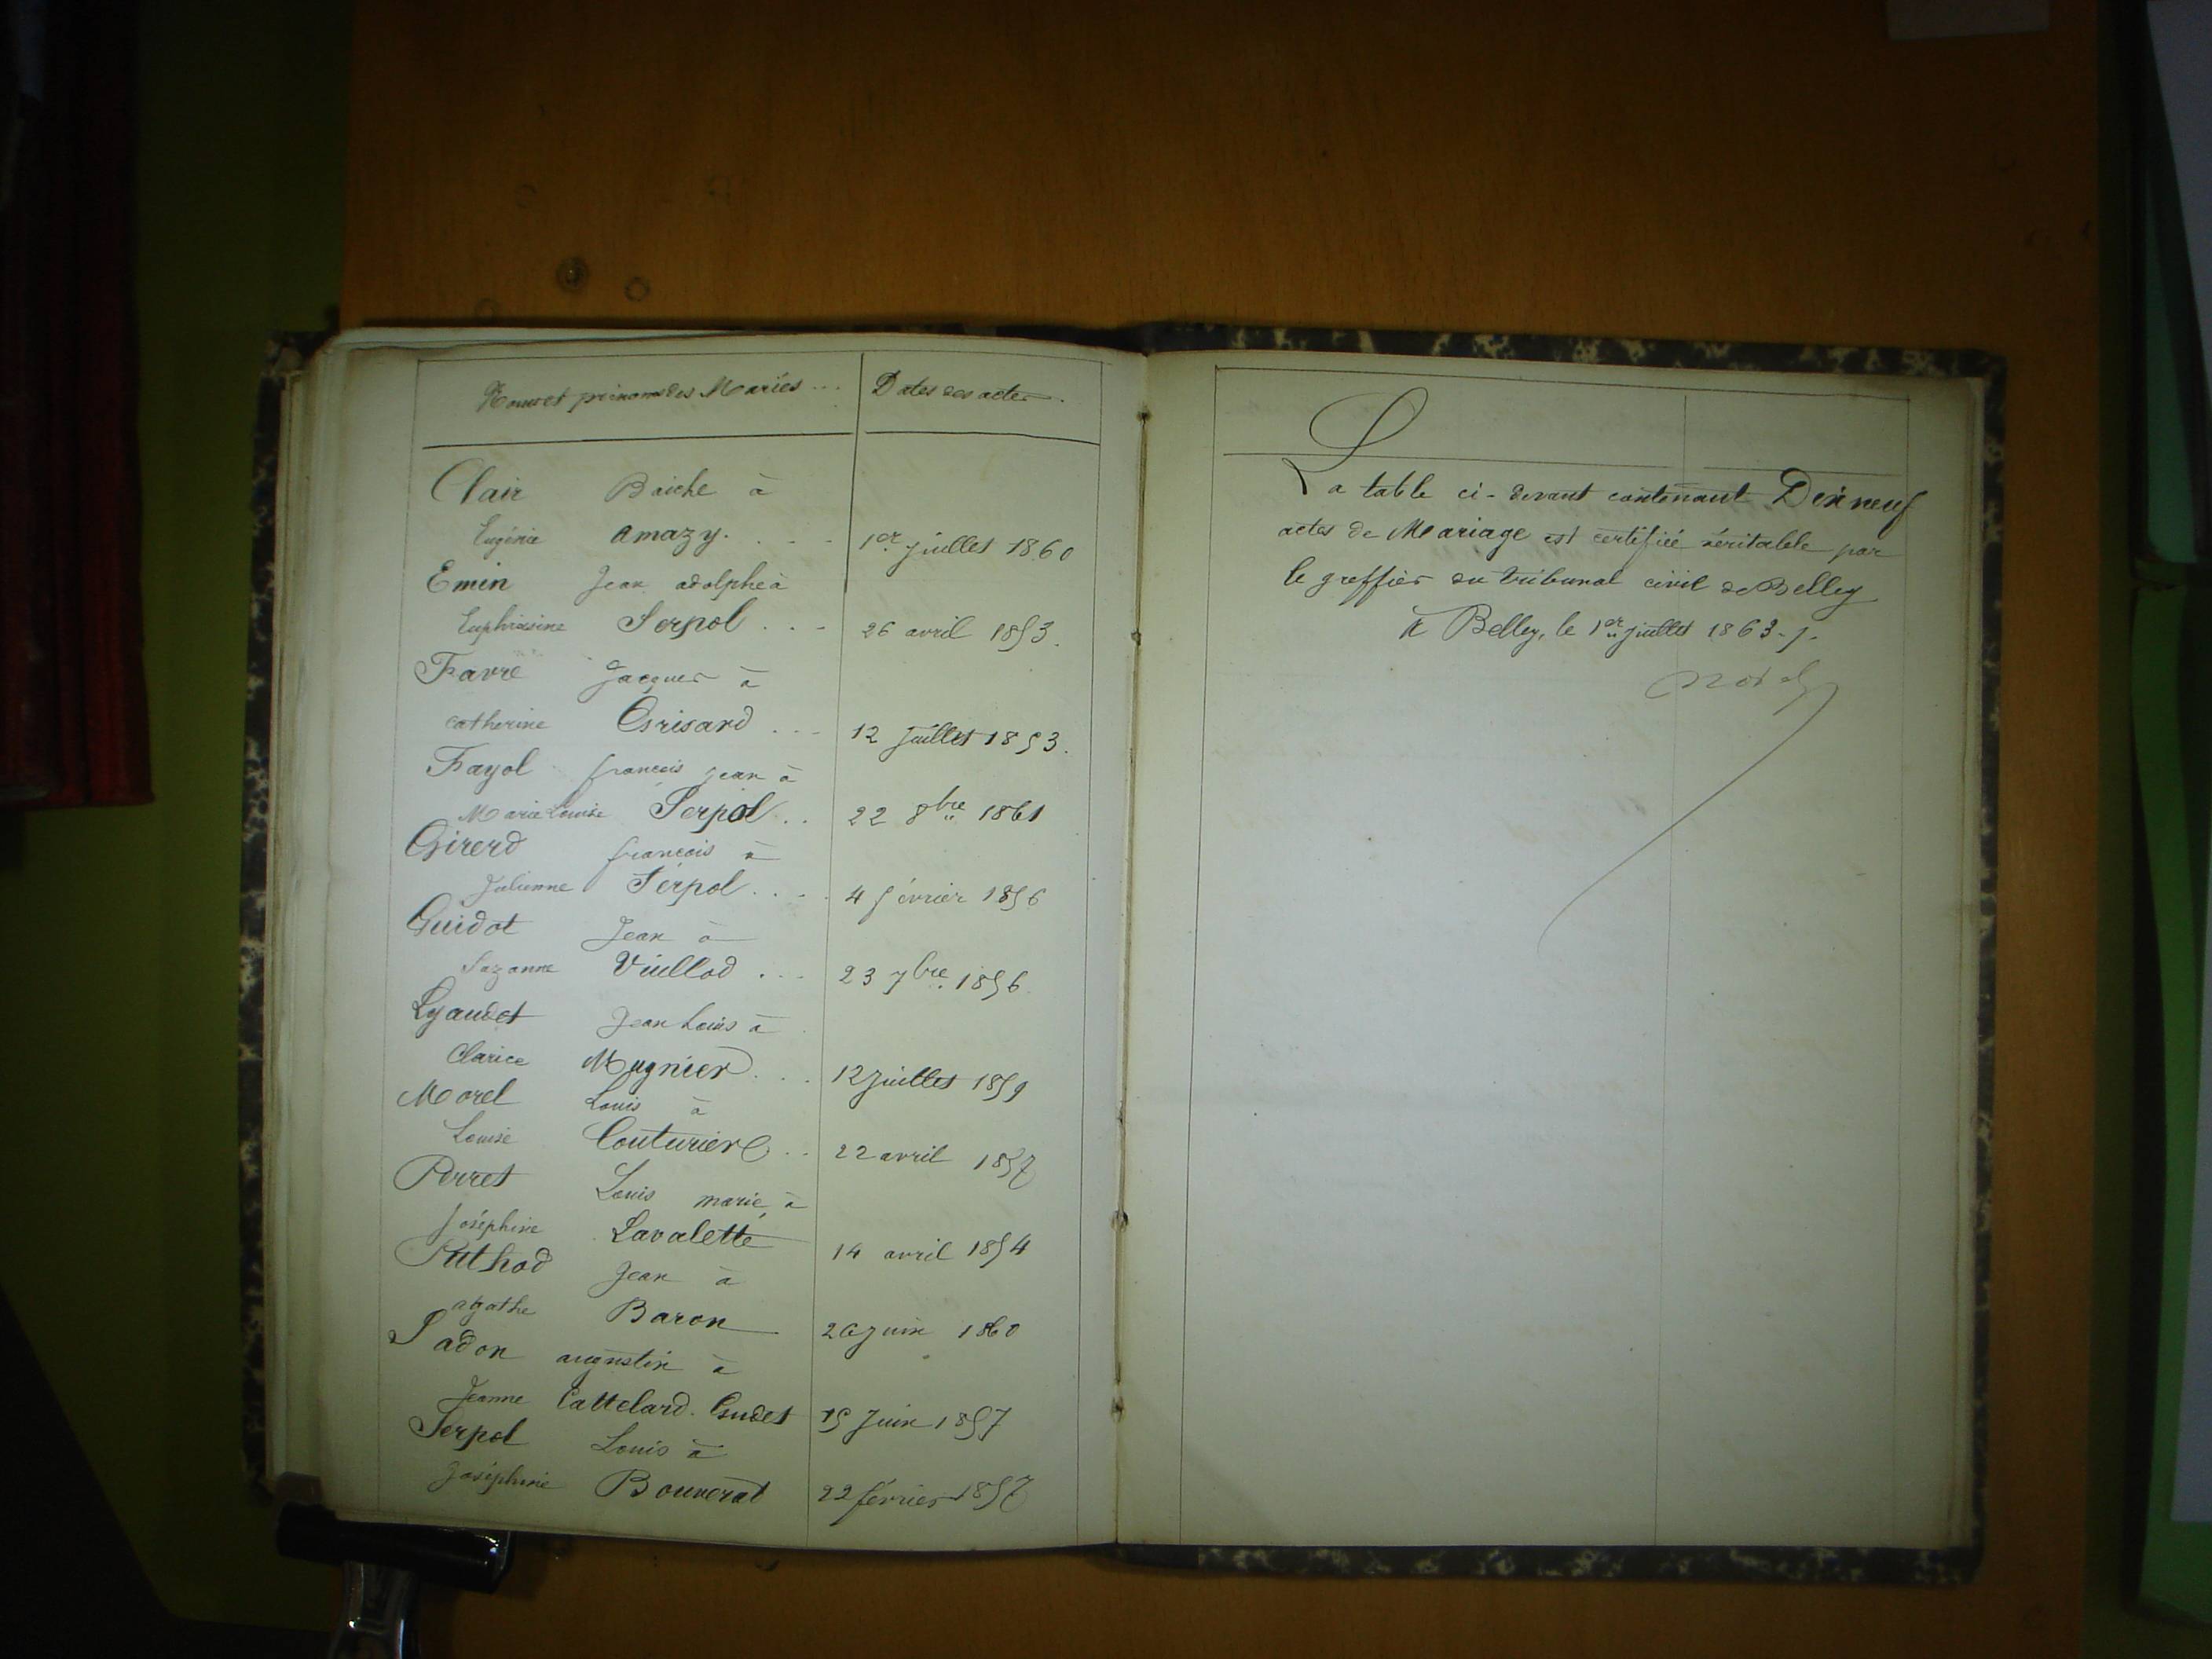 Noms et prénoms des Mariés ...
Dates des actes.
Clair Baiche à
Eugénie Amazy. . . . 1er juillet 1860
Emin Jean adolphe à
Euphrasine Serpol . . . 26 avril 1853.
Favre Jacques à
catherine Grisard . . . 12 Juillet 1853.
Fayol françois jean à
Marie Louise Serpol . . 22 8bre 1861
Girerd françois à
Julienne Serpol . . . . 4 février 1856
Guidot Jean à
Suzanne Vuillod . . . 23 7bre 1856.
Lyaudet Jean Louis à
Clarice Mugnier . . . 12 Juillet 1859
Morel Louis à
Louise Couturier . . 22 avril 1857
Perret Louis marie, à
Joséphine Lavalette 14 avril 1854
Puthod Jean à
agathe Baron 26 juin 1860
Sadon augustin à
Jeanne Cattelard. Gudet 15 Juin 1857
Serpol Louis à
Joséphine Bouverat 22 février 1857
La table ci-devant contenant Dix neuf
actes de Mariage est certifiée véritable par
le greffier du tribunal civil de Belley
à Belley, le 1er juillet 1863.